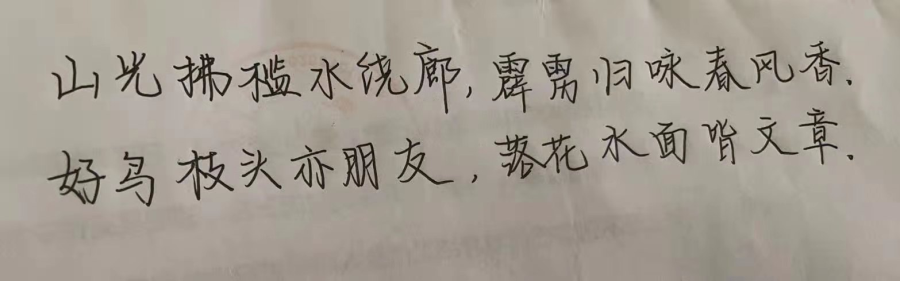 山光拂槛水绕廊,霹雳归咏春风香.
好鸟枝头亦朋友,落花水面皆文章.